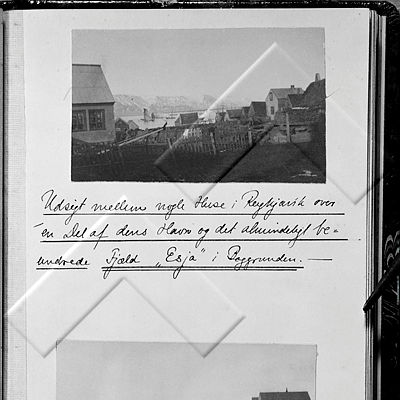 Udsigt mellem nogle Huse i Reykjavik over
en Del af dens Havn og det almindeligt be-
undrede Fjæld „Esja" i Baggrunden. —